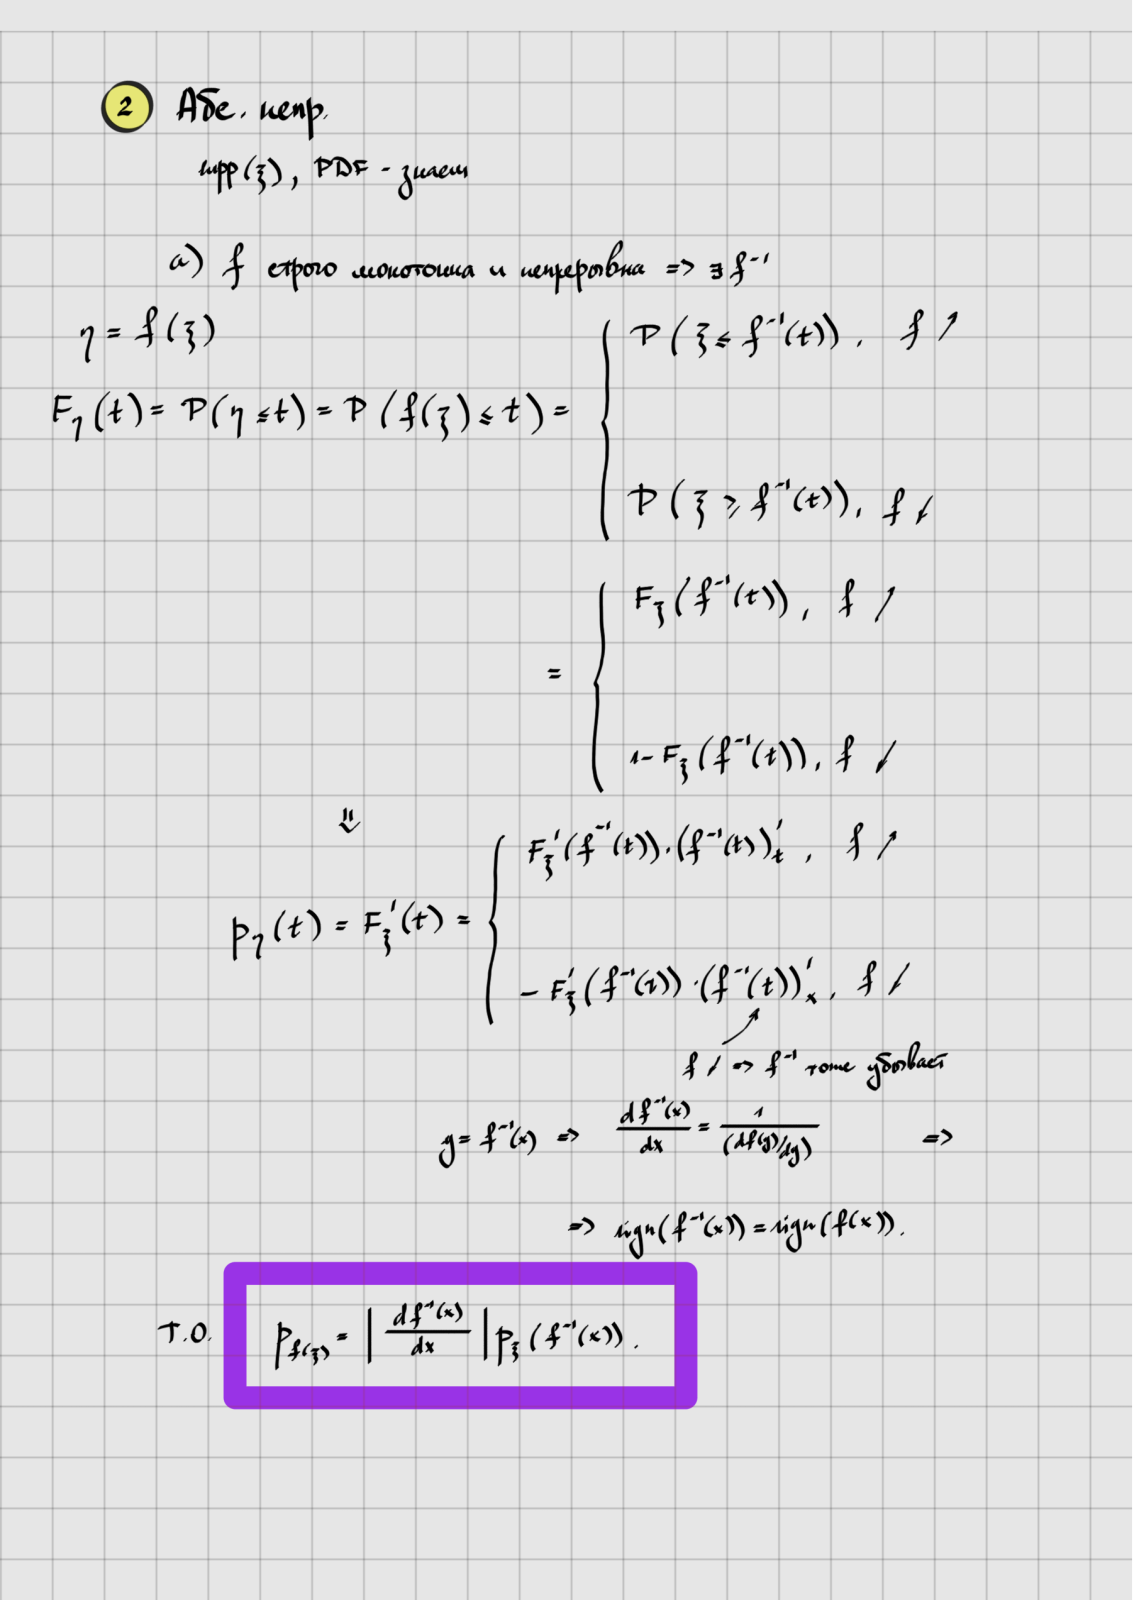 2 Абс. непр.
supp(ξ), PDF - знаем
a) f строго монотонна и непрерывна => ∃ f⁻¹
η = f(ξ)
P(ξ ≤ f⁻¹(t)), f ↗
F_η(t) = P(η ≤ t) = P(f(ξ) ≤ t) = {
P(ξ ≥ f⁻¹(t)), f ↙
F_ξ(f⁻¹(t)), f ↗
= {
1 - F_ξ(f⁻¹(t)), f ↙
⇓
F_ξ'(f⁻¹(t))·(f⁻¹(t))'_t, f ↗
p_η(t) = F_ξ'(t) = {
- F_ξ'(f⁻¹(t))·(f⁻¹(t))'_x, f ↙
f ↙ => f⁻¹ тоже убывает
y = f⁻¹(x) => df⁻¹(x)/dx = 1/(df(y)/dy) =>
=> sign(f⁻¹(x)) = sign(f(x)).
Т.О. p_f(ξ) = |df⁻¹(x)/dx| p_ξ(f⁻¹(x)).